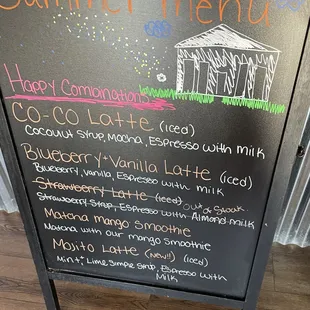 Summer Menu
Happy Combinations
CO-CO Latte (iced)
Coconut Syrup, Macha, Espresso with milk
Blueberry+Vanilla Latte (iced)
Blueberry, vanilla, Espresso with milk
Strawberry Latte (iced) Out of Stock
Strawberry Syrup, Espresso with Almond milk
Matcha mango Smoothie
Matcha with our mango Smoothie
Mojito Latte (New!!) (iced)
Mint, Lime Simple Syrup, Espresso with
Milk